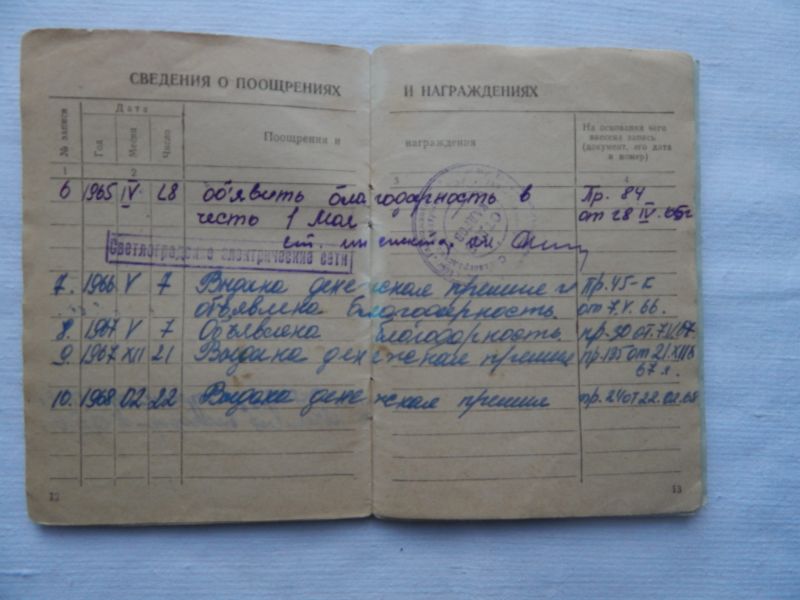 СВЕДЕНИЯ О ПООЩРЕНИЯХ И НАГРАЖДЕНИЯХ
№ записи
Дата
Год
Месяц
Число
Поощрения и награждения
На основании чего
внесена запись
(документ, его дата
и номер)
1 2 3 4
6 1965 IV 28 объявить благодарность в Пр. 84
честь 1 Мая от 28 IV 65г
ст. инспектор
Светлоградские электрические сети
7. 1966 V 7 Выдана денежная премия и Пр. 45-к
объявлена благодарность. от 7.V.66.
8. 1967 V 7 Объявлена благодарность. пр. 90 от 7.V.67.
9. 1967 XII 21 Выдана денежная премия пр. 195 от 21.XII
67 г.
10. 1968 02 22 Выдана денежная премия пр. 24 от 22.02.68
12 13